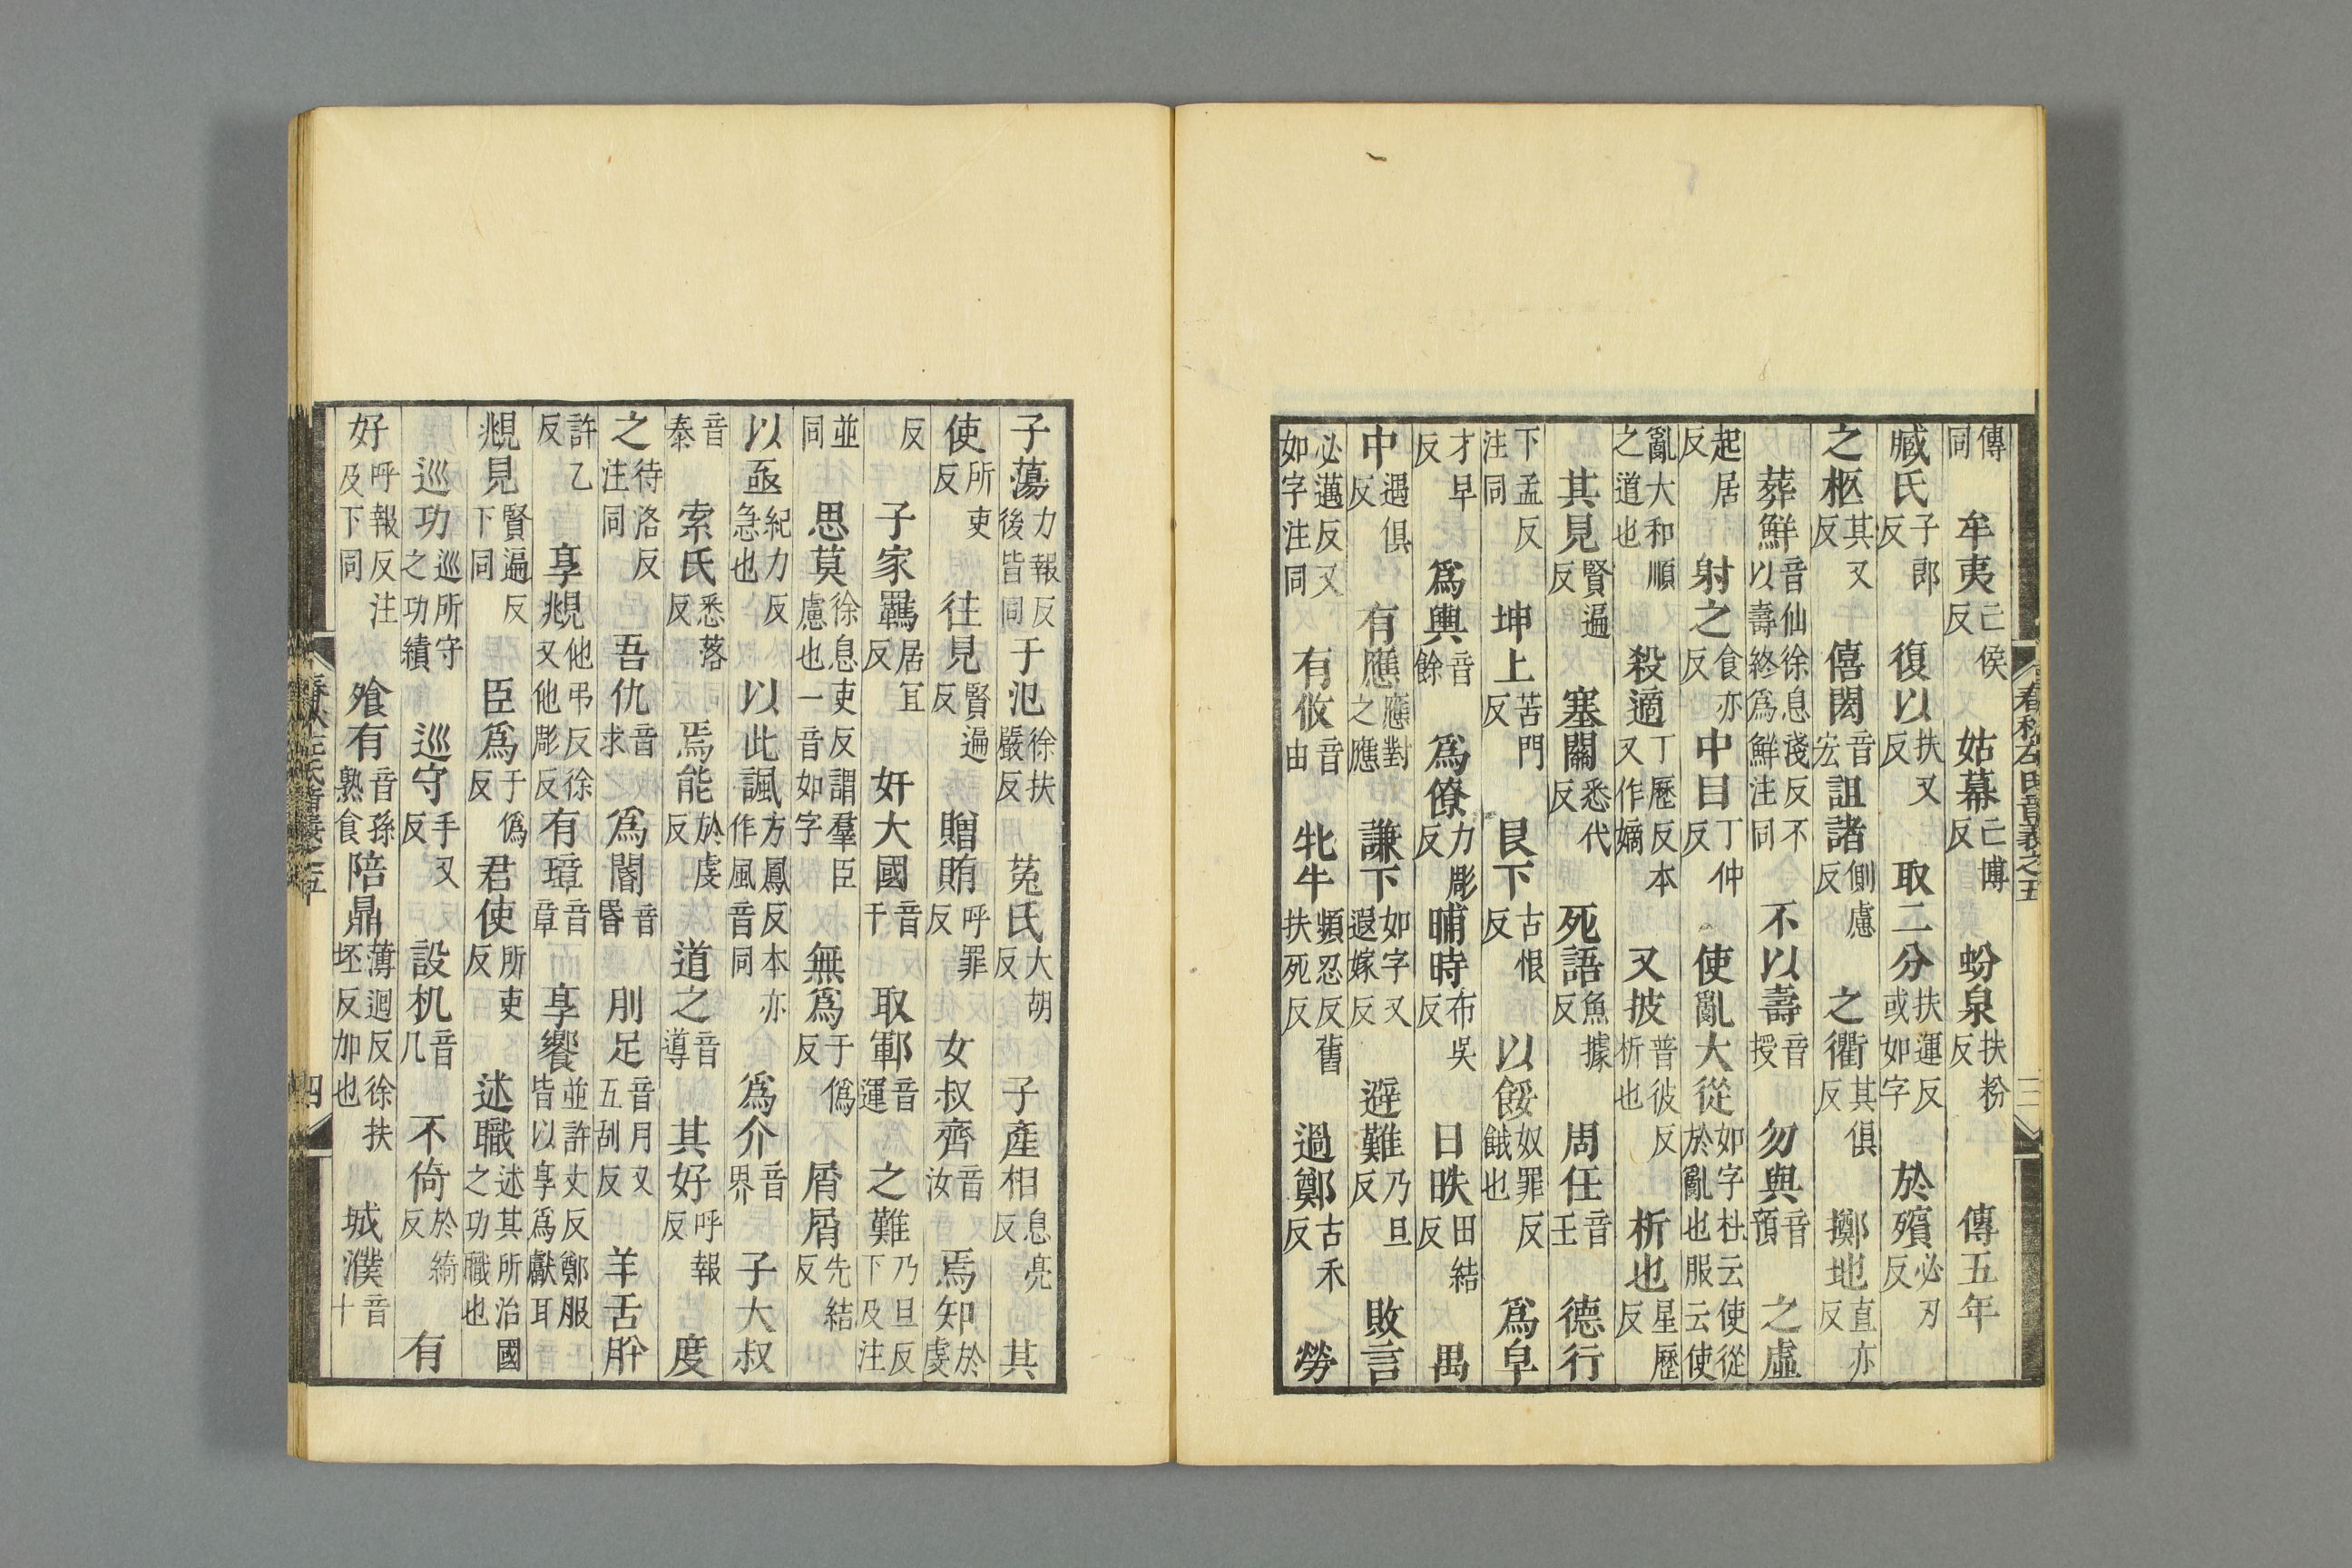 傳同　牟夷亡侯反　姑幕亡博反　蚡泉扶粉反　傳五年
臧氏子郎反　復以扶又反　取二分扶運反或如字　於殯必刃反
之柩其又反　僖閎音宏　詛諸側慮反　之衢其俱反　擲地直亦反
葬鮮音仙徐息淺反不以壽終爲鮮注同　不以壽音授　勿與音預　之虛
起居反　射之食亦反　中目丁仲反　使亂大從如字杜云使從於亂也服云使
亂大和順之道也　殺適丁歷反本又作嫡　又披普彼反析也　析也星歷反
其見賢遍反　塞關悉代反　死語魚據反　周任音壬　德行
下孟反注同　坤上苦門反　艮下古恨反　以餒奴罪反餓也　爲皁
才早反　爲輿音餘　爲僚力彫反　晡時布吳反　日昳田結反　禺
中遇俱反　有應應對之應　謙下如字又遐嫁反　避難乃旦反　敗言
必邁反又如字注同　有攸音由　牝牛頻忍反舊扶死反　過鄭古禾反　勞
春秋左氏音義之五　三
子蕩力報反後皆同　于氾徐扶嚴反　菟氏大胡反　子產相息亮反　其
使所吏反　往見賢遍反　贈賄呼罪反　女叔齊音汝　焉知於虔
反　子家羈居宜反　奸大國音干　取鄆音運　之難乃旦反下及注
並同　思莫徐息吏反謂羣臣慮也一音如字　無爲于僞反　屑屑先結反
以亟紀力反急也　以此諷方鳳反本亦作風音同　爲介音界　子大叔
音泰　索氏悉落反　焉能於虔反　道之音導　其好呼報反　度
之待洛反注同　吾仇音求　爲閽音昬　刖足音月又五刮反　羊舌肸
許乙反　享覜他弔反徐又他彫反　有璋音章　享饗並許丈反鄭服皆以享爲獻耳
覜見賢遍反下同　臣爲于僞反　君使所吏反　述職述其所治國之功職也
巡功巡所守之功績　巡守手又反　設机音几　不倚於綺反　有
好呼報反注及下同　飧有音孫熟食　陪鼎薄迴反徐扶坯反加也　城濮音卜
四